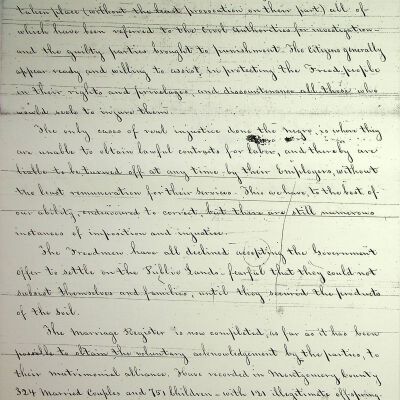 taken place (without the least provocation on their part) all of
which have been referred to the Civil Authorities for investigation
and the guilty parties brought to punishment. The Citizens generally
appear ready and willing to assist, in protecting the Freed people
in their rights and privelages, and discountenance all those who
would seek to injure them.
The only cases of real injustice done the negro, is where they
are unable to obtain lawful contracts for labor, and thereby are
liable to be turned off at any time by their Employers, without
the least remuneration for their services. This we have, to the best of
our ability, endeavored to correct, but there are still numerous
instances of imposition and injustice.
The Freedmen have all declined accepting the Government
offer to settle on the Public Lands. fearful that they could not
subsist themselves and families, until they secured the products
of the Soil.
The Marriage Register is now completed, as far as it has been
possible to obtain the voluntary acknowledgement by the parties, to
their matrimonial alliance. Have recorded in Montgomery County
324 Married Couples and 751 Children - with 121 illegitimate offspring